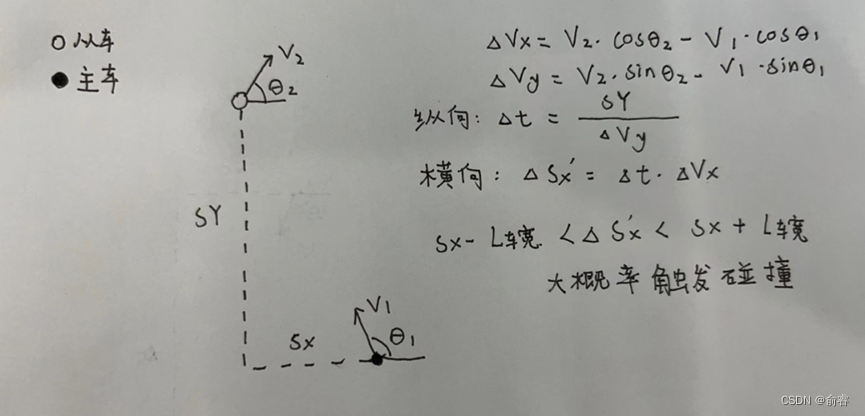 从车
主车
V2
θ2
SY
SX
V1
θ1
ΔVx = V2·cosθ2 - V1·cosθ1
ΔVy = V2·sinθ2 - V1·sinθ1
纵向: Δt = SY / ΔVy
横向: ΔSx' = Δt·ΔVx
Sx - L车宽 < ΔS'x < Sx + L车宽
大概率触发碰撞
CSDN @俞睿